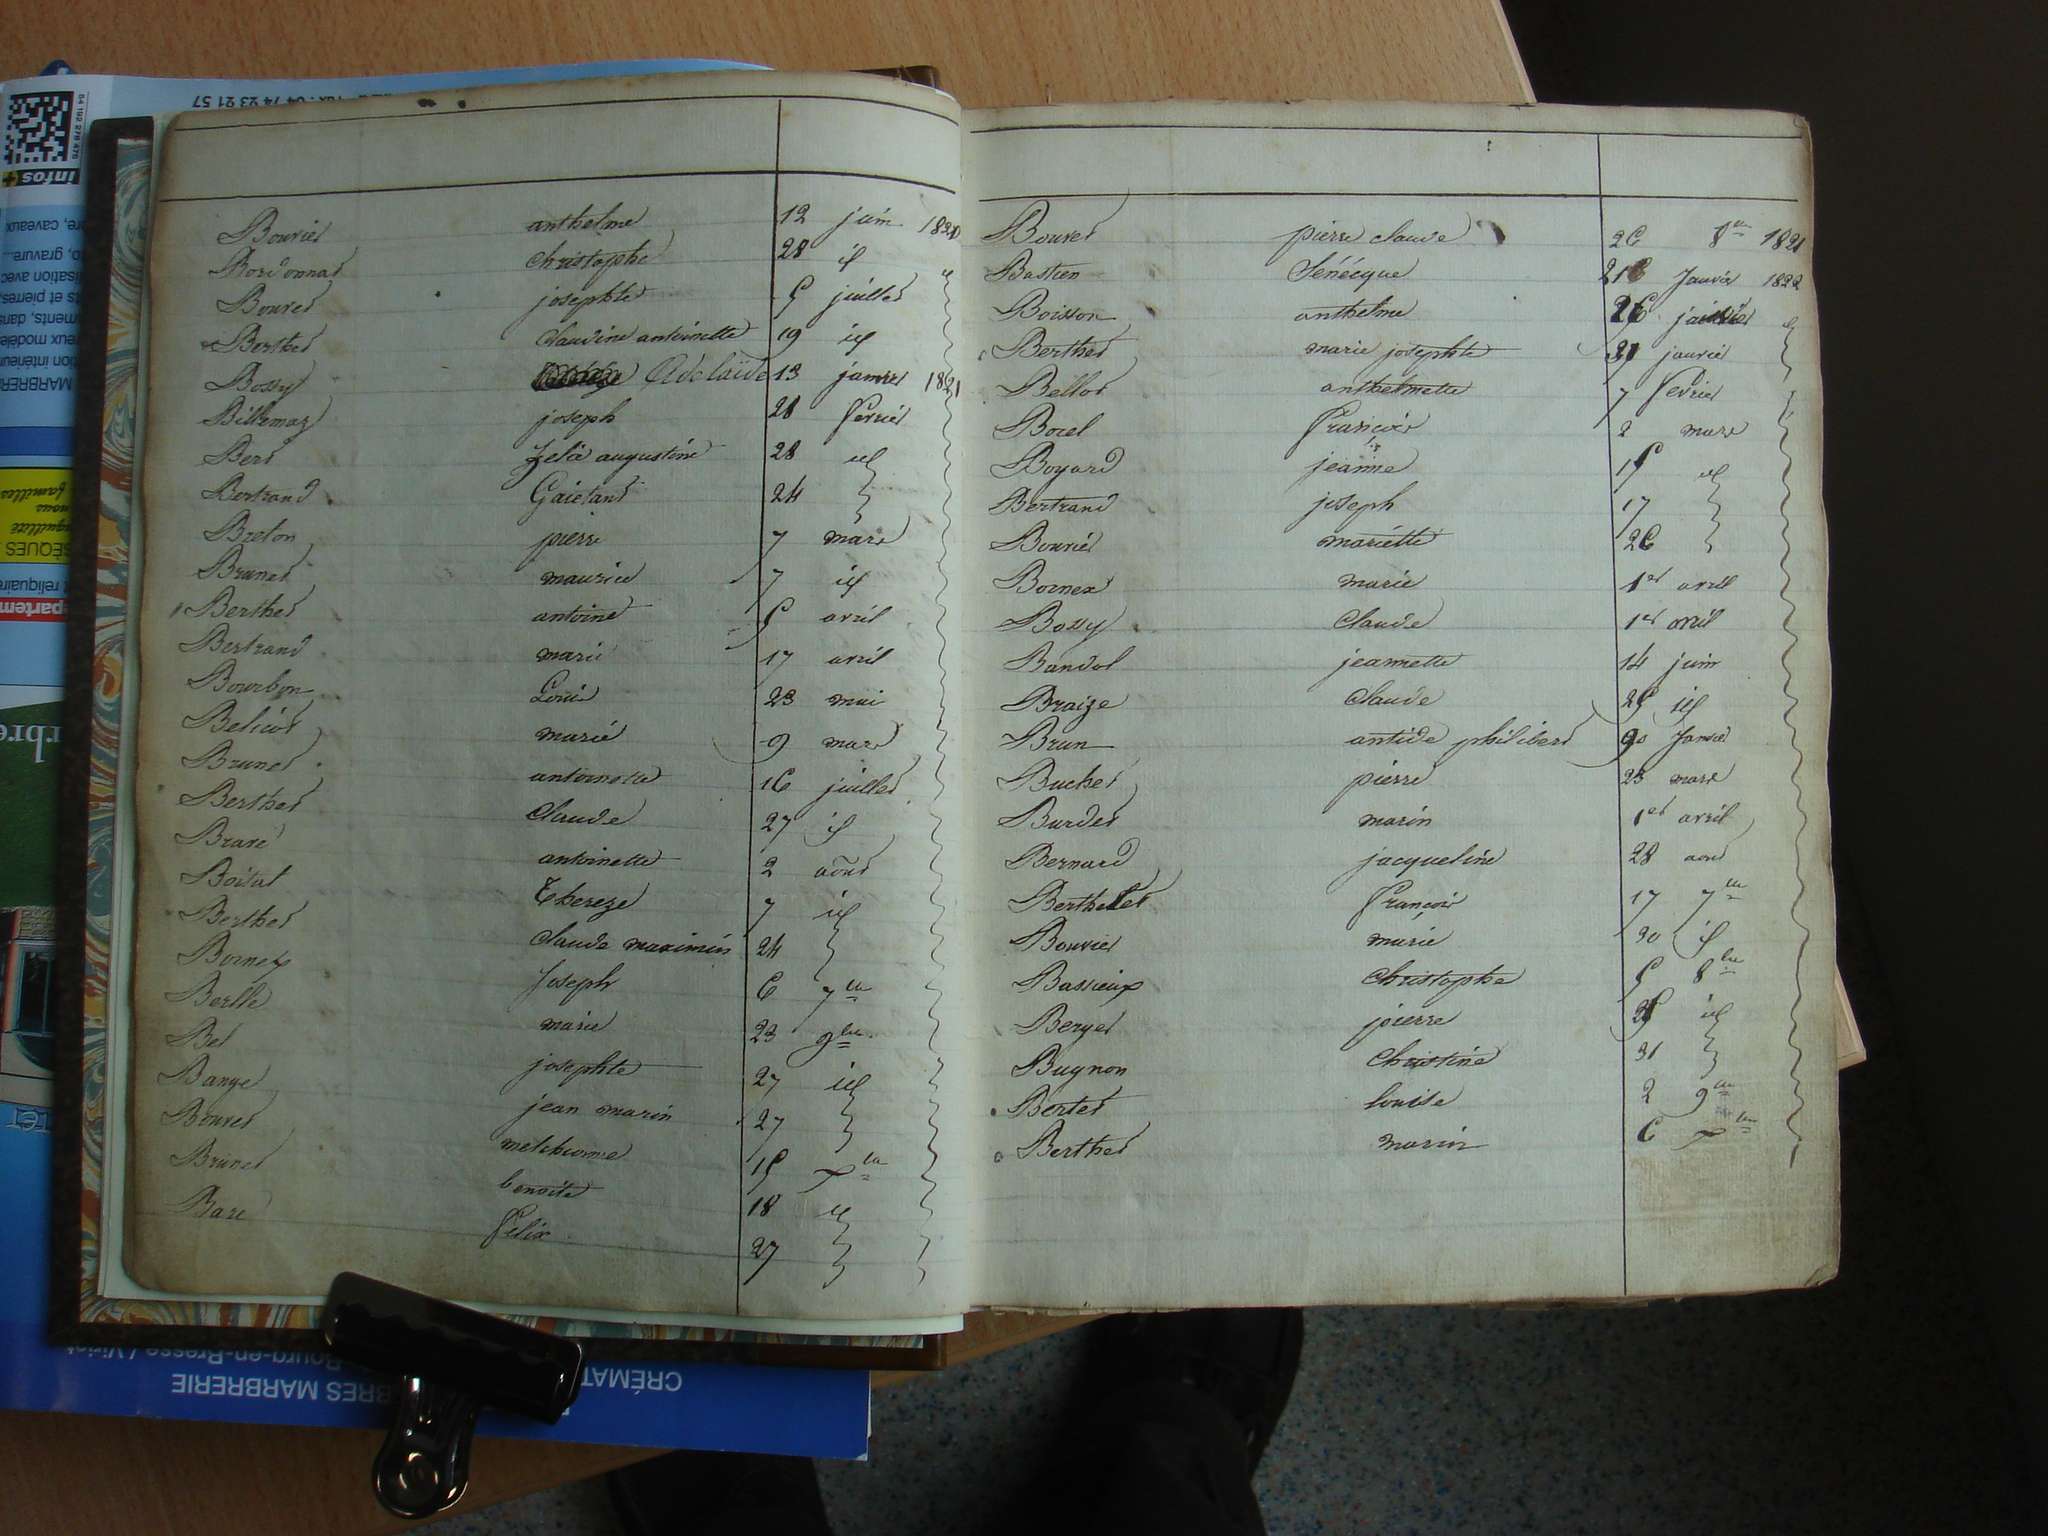 Bouvier anthelme 12 juin 1820
Bordonnat christophe 28 id
Bouvet josephte 5 juillet
Berthet claudine antoinette 19 id
Bossy Adelaide 13 janvier 1821
Billiemaz joseph 21 fevrier
Bert Zelie augustine 28 id
Bertrand Gaietand 24
Breton pierre 7 mars
Brunet maurice 7 id
Berthet antoine 5 avril
Bertrand marie 17 avril
Bourbon Loui 23 mai
Belicot marie 9 mars
Brunet antoinette 16 juillet
Berthet claude 27 id
Brare antoinette 2 août
Boital Thereze 7 id
Berthet claude maximin 24
Bornex Joseph 6 7bre
Berlle marie 23 9bre
Bel josephte 27 id
Bange jean marin 27
Bouvet melchionne 15 xbre
Brunet benoite 18 id
Bare Felix 27
Bouvet pierre claude 26 8bre 1821
Bastien Sénécque 21 Janvier 1822
Boisson anthelme 26 janvier
Berthet marie josephte 31 janvier
Bellot anthelmette 7 fevrier
Bocel François 2 mars
Boyard jeanne 15 id
Bertrand joseph 17
Bouvier mariette 26
Bornex marie 1er avril
Bossy claude 1er avril
Bandol jeannette 14 juin
Braize claude 25 id
Brun antide philibert Janvier
Buchet pierre 23 mars
Burdet marin 1er avril
Bernard jacqueline 28 aout
Berthelet François 17 7bre
Bouvier marie 30 id
Bassieux christophe 5 8bre
Berger pierre id
Bugnon christine 31
Bertet louise 2 9bre
Berthet marin 6 xbre
infos+
CRÉMAT
BRES MARBRERIE
Bourg-en-Bresse / Viriat